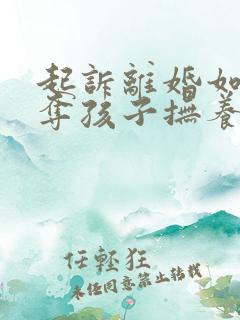 起訴離婚如
奪孩子撫養
任輕狂
未经同意禁止转载